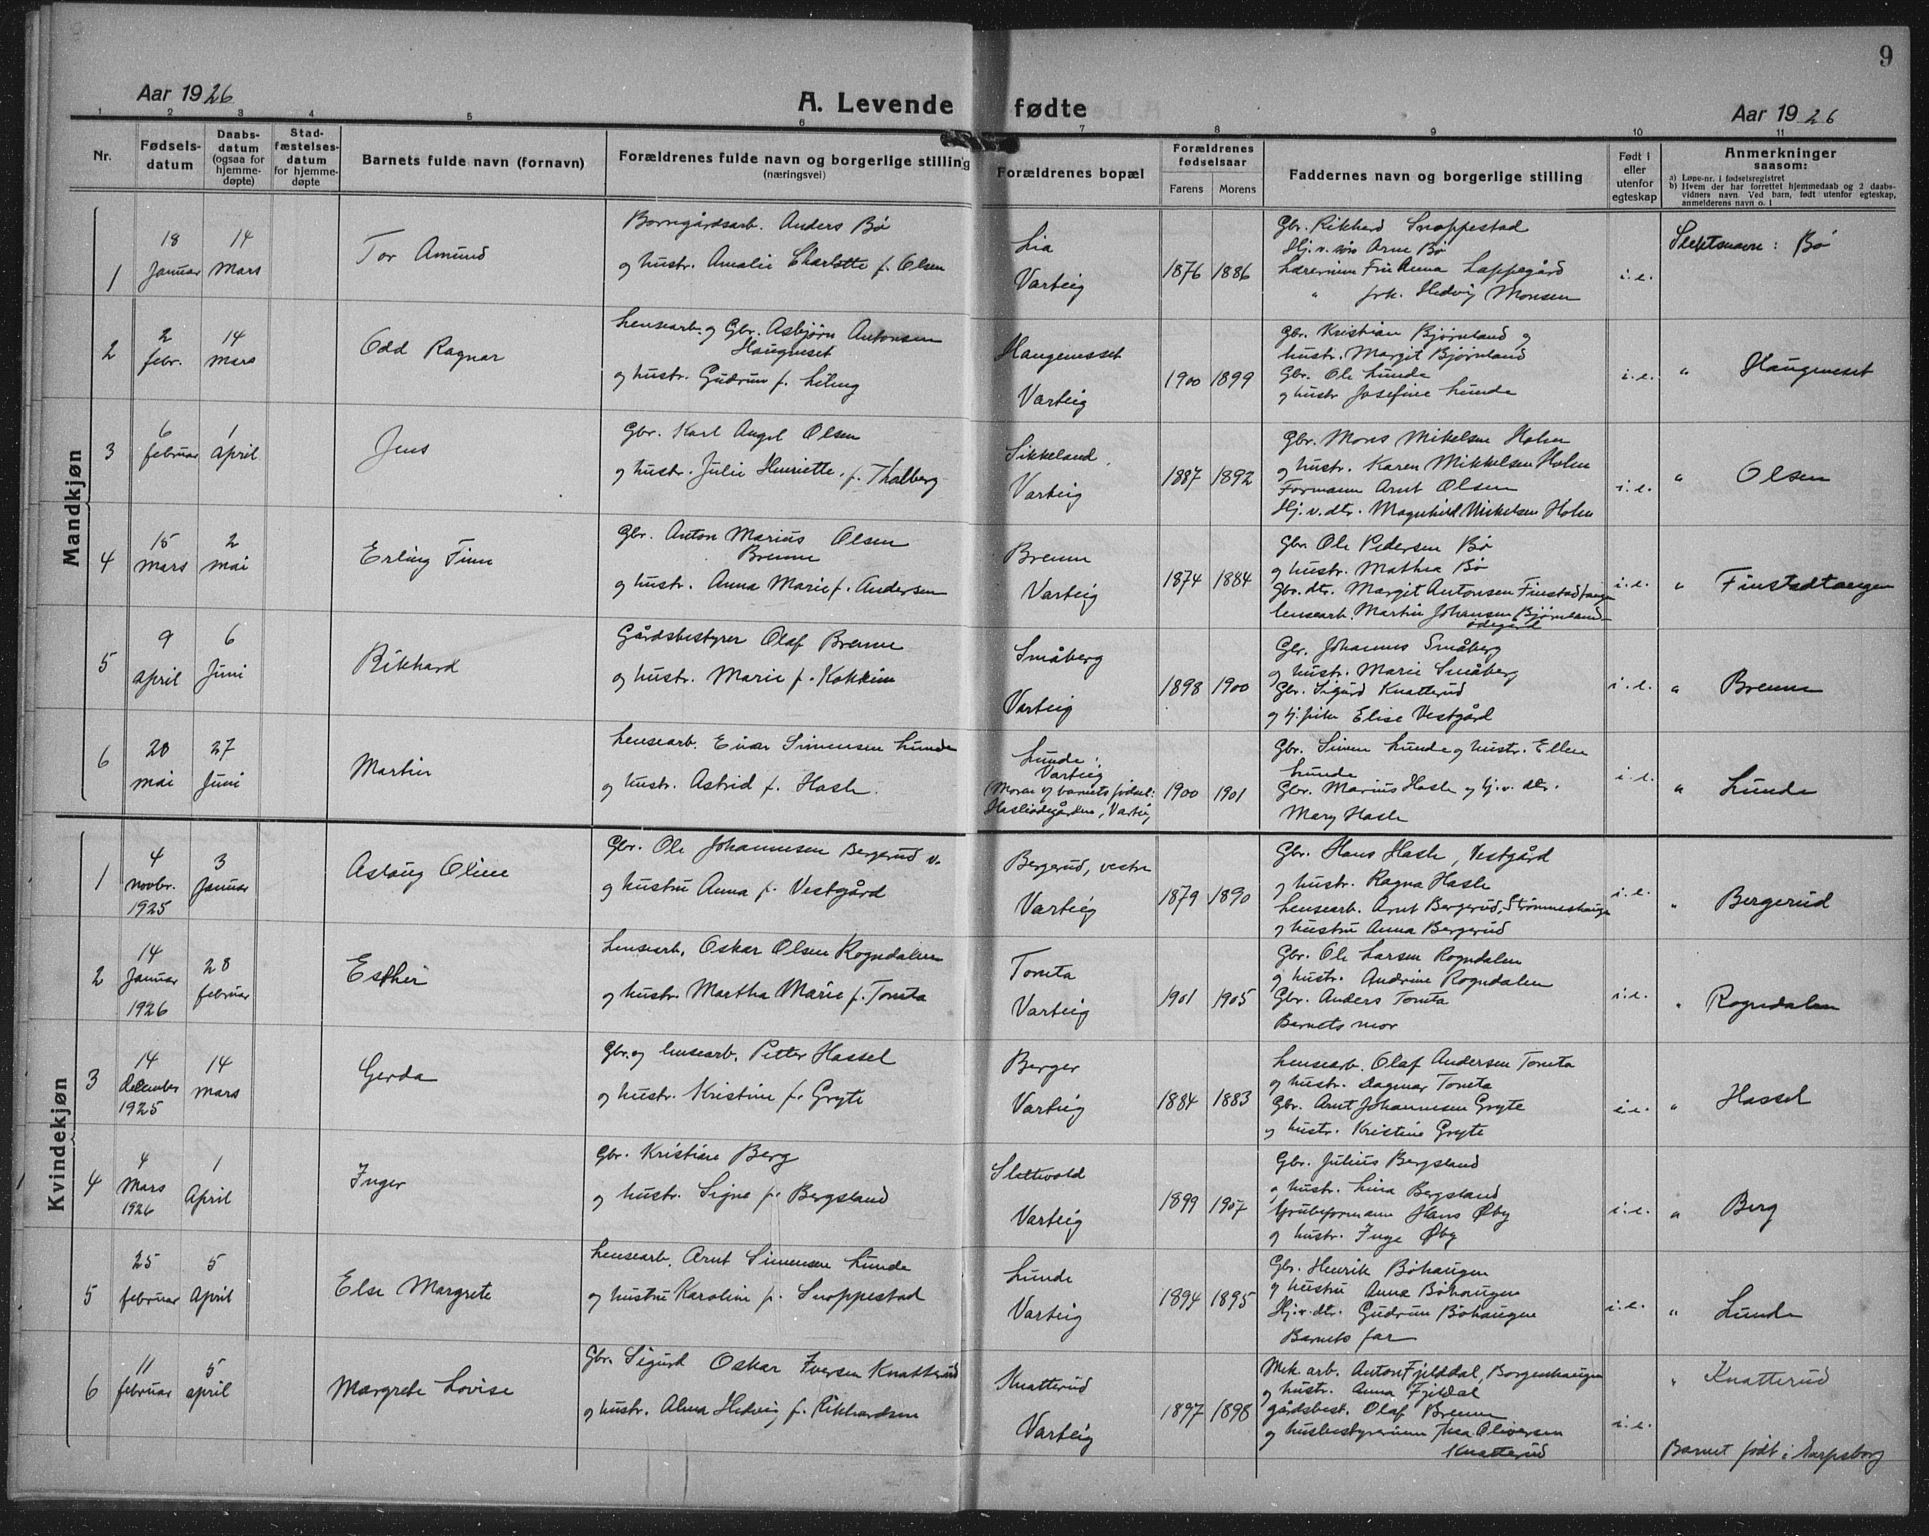 9
Aar 1926
A. Levende fødte
Aar 1926
1 2 3 4 5 6 7 8 9 10 11
Nr.
Fødselsdatum
Daabsdatum (ogsaa for hjemmedøpte)
Stadfæstelsesdatum for hjemmedøpte
Barnets fulde navn (fornavn)
Forældrenes fulde navn og borgerlige stilling
(næringsvei)
Forældrenes bopæl
Forældrenes fødselsaar
Farens Morens
Faddernes navn og borgerlige stilling
Født i eller utenfor egteskap
Anmerkninger
saasom:
a) Løpe-nr. i fødselsregistret
b) Hvem der har forrettet hjemmedaab og 2 daabsvidners navn. Ved barn, født utenfor egteskap, anmelderens navn o. l
Mandkjøn
1
18 Januar
14 Mars
Tor Amund
Borregårdsarb. Anders Bø
og hustr. Amalie Charlotte f. Olsen
Lia
Varteig
1876 1886
Gbr. Rikhard Snoppestad
Hj.v. søn Arne Bø
Lærerinne Fru Anna Lappegård
" frk. Hedvig Monsen
i.e.
Slektsnavn: Bø
2
2 febr.
14 Mars
Odd Ragnar
Lensearb. og Gbr. Asbjørn Antonsen
Haugneset
og hustr. Gudrun f. Liling
Haugenesset
Varteig
1900 1899
Gbr. Kristian Bjørnland og
hustr. Margit Bjørnland
Gbr. Ole Lunde
og hustr Josefine Lunde
i.e.
" Haugeneset
3
6 februar
1 april
Jens
Gbr. Karl Angel Olsen
og hustr. Julie Henriette f. Thalberg
Sikkeland
Varteig
1887 1892
Gbr. Mons Mikelsen Holen
og hustr. Karen Mikkelsen Holen
Formann Arnt Olsen
Hj.v.dtr. Magnhild Mikelsen Holen
i.e.
" Olsen
4
15 Mars
2 mai
Erling Finn
Gbr. Anton Marius Olsen
Brenne
og hustr. Anna Marie f. Andersen
Brenne
Varteig
1874 1884
Gbr. Ole Pedersen Bø
og hustr. Mathea Bø
Gbr.dtr. Margit Antonsen Finstadtangen
lensearb. Martin Johansen Bjørnland-
ødegård
i.e.
" Finstadtangen
5
9 april
6 Juni
Rikhard
Gårdsbestyrer Olaf Brenne
og hustr. Marie f. Kokkim
Småberg
Varteig
1898 1900
Gbr. Johannes Småberg
og hustr. Marie Småberg
Gbr. Sigurd Knatterud
og hj. pike Elise Vestgård
i.e.
" Brenne
6
20 mai
27 Juni
Martin
Lensearb. Einar Simensen Lunde
og hustr. Astrid f. Hasle.
Lunde:
Varteig
(Moren og barnets fødsel:
Hasleødegården, Varteig
1900 1901
Gbr. Simen Lunde og hustr. Ellen
Lunde
Gbr. Marius Hasle og hj.v. dtr.
Mary Hasle
i.e.
" Lunde
Kvindekjøn
1
4 novbr. 1925
3 Januar
Aslaug Oline
Gbr. Ole Johannesen Bergerud v.
og hustru Anna f. Vestgård
Bergerud, vestre
Varteig
1879 1890
Gbr. Hans Hasle, Vestgård
og hustr. Ragna Hasle
Lensearb. Arnt Bergerud, Strømneshaugen
og hustru Anna Bergerud
i.e.
" Bergerud
2
14 Januar 1926
28 februar
Esther
Lensearb. Oskar Olsen Rogndalen
og hustr. Martha Marie f. Tomta
Tomta
Varteig
1901 1905
Gbr. Ole Larsen Rogndalen
og hustr. Andrine Rogndalen
Gbr. Anders Tomta
Barnets mor
i.e.
" Rogndalen
3
14 december 1925
14 Mars
Gerda
Gbr. og lensearb. Petter Hassel
og hustr. Kristine f. Gryte
Berger
Varteig
1884 1883
Lensearb. Olaf Andersen Tomta
og hustr. Dagmar Tomta
Gbr. Arnt Johannesen Gryte
og hustr. Kristine Gryte
i.e.
" Hassel
4
4 Mars 1926
1 April
Inger
Gbr. Kristian Berg
og hustr. Signe f. Bergsland
Slettvold
Varteig
1899 1907
Gbr. Julius Bergsland
og hustr. Lina Bergsland
Grubeformann Hans Øby
og hustr. Inga Øby
i.e.
" Berg
5
25 februar
5 April
Else Margrete
Lensearb. Arnt Simensen Lunde
og hustru Karoline f. Snoppestad
Lunde
Varteig
1894 1895
Gbr. Henrik Bøhaugen
og hustru Anna Bøhaugen
Hj.v.dtr. Gudrun Bøhaugen
Barnets far
i.e.
" Lunde
6
11 februar
5 april
Margrete Lovise
Gbr. Sigurd Oskar Iversen Knatterud
og hustr. Alma Hedvig f. Rikhardsen
Knatterud
Varteig
1897 1898
Mek. arb. Anton Fjelddal, Borgenhaugen
og hustr. Anna Fjeldal
gårdsbest. Olaf Brenne
og husbestyrerinne Thea Oliversen
Knatterud
i.e.
" Knatterud
Barnet født i Sarpsborg